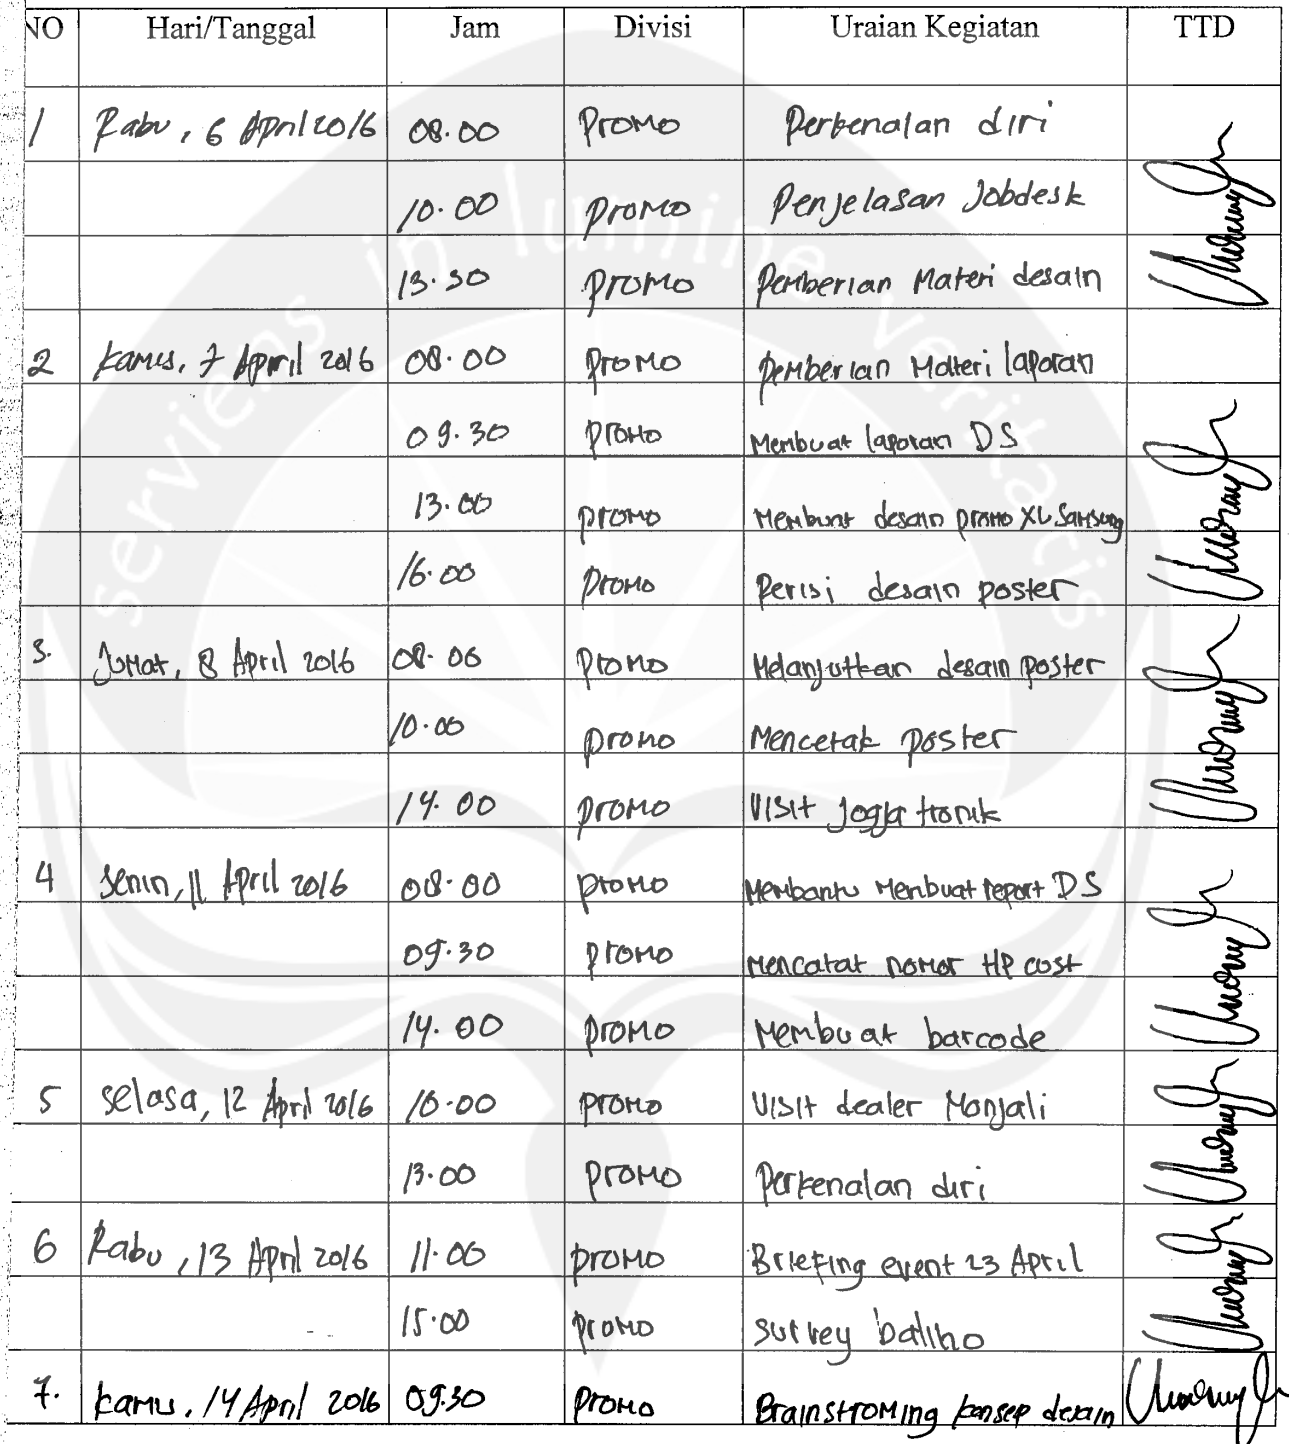 NO Hari/Tanggal Jam Divisi Uraian Kegiatan TTD
1 Rabu, 6 April 2016 08.00 Promo Perkenalan diri
10.00 Promo Penjelasan Jobdesk
13.30 Promo Pemberian Materi desain
2 Kamis, 7 April 2016 08.00 Promo Pemberian Materi laporan
09.30 Promo Membuat laporan DS
13.00 Promo Membuat desain promo XL Samsung
16.00 Promo desain poster
3. Jumat, 8 April 2016 08.00 Promo Melanjutkan desain poster
10.00 Promo Mencetak poster
14.00 Promo Visit Jogja tronik
4 Senin, 11 April 2016 08.00 Promo Membantu Membuat report DS
09.30 Promo Mencatat nomor HP cust
14.00 Promo Membuat barcode
5 Selasa, 12 April 2016 10.00 Promo Visit dealer Monjali
13.00 Promo Perkenalan diri
6 Rabu, 13 April 2016 11.00 Promo Briefing event 23 April
15.00 Promo survey baliho
7. Kamis, 14 April 2016 09.30 Promo Brainstroming konsep desain
serviens in lumine veritatis